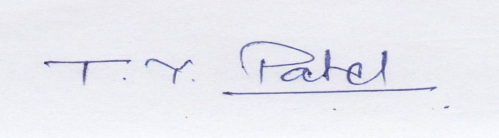 T. Y. Patel